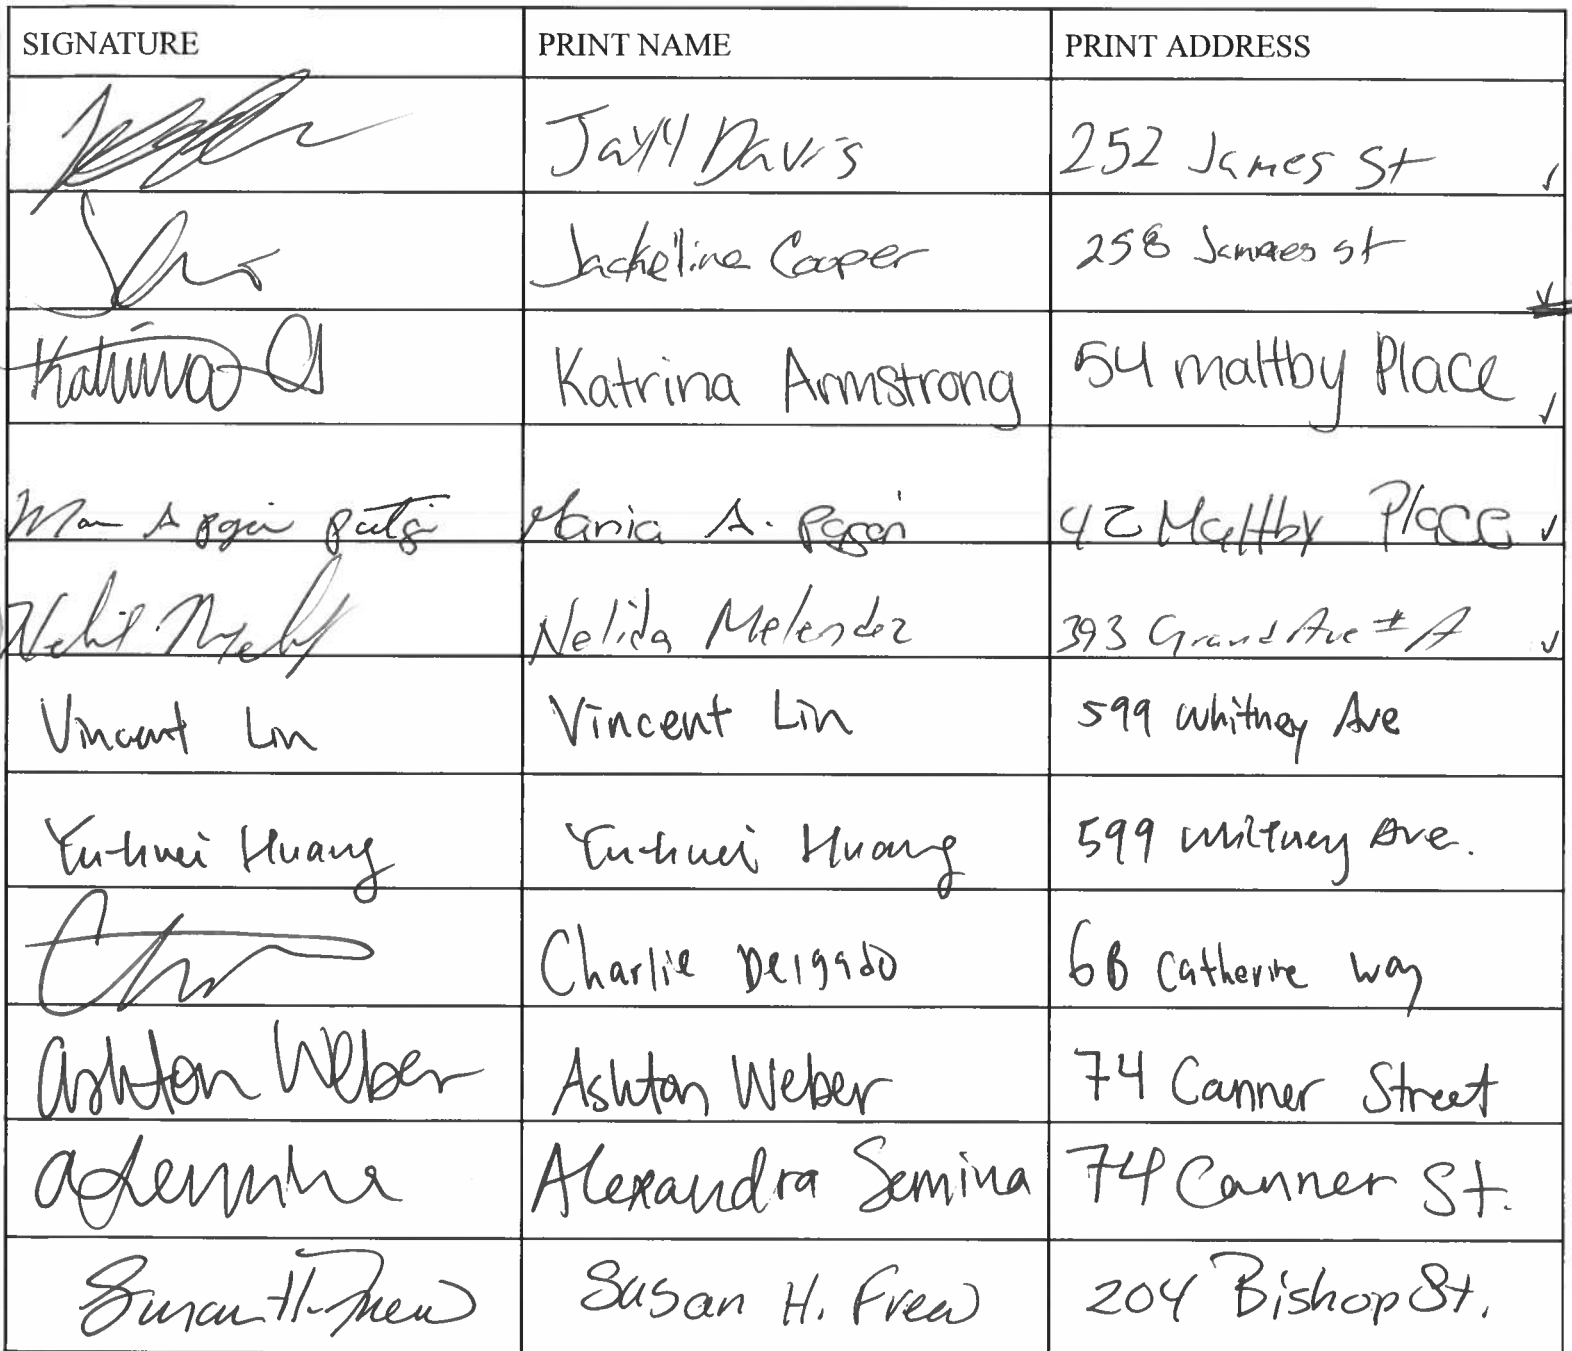 SIGNATURE PRINT NAME PRINT ADDRESS
Davis 252 James St
Jackeline Cooper 258 Jammes st
Katrina Katrina Armstrong 54 maltby Place
Maria A. Pagan 42 Maltby Place
Nelida Melendez 393 Grand Ave # A
Vincent Lin Vincent Lin 599 Whitney Ave
Yu-huei Huang Yu-huei Huang 599 Whitney Ave.
Charlie Delgado 68 Catherine Way
Ashton Weber Ashton Weber 74 Canner Street
Alexandra Semina 74 Canner St.
Susan H. Frew Susan H. Frew 204 Bishop St.